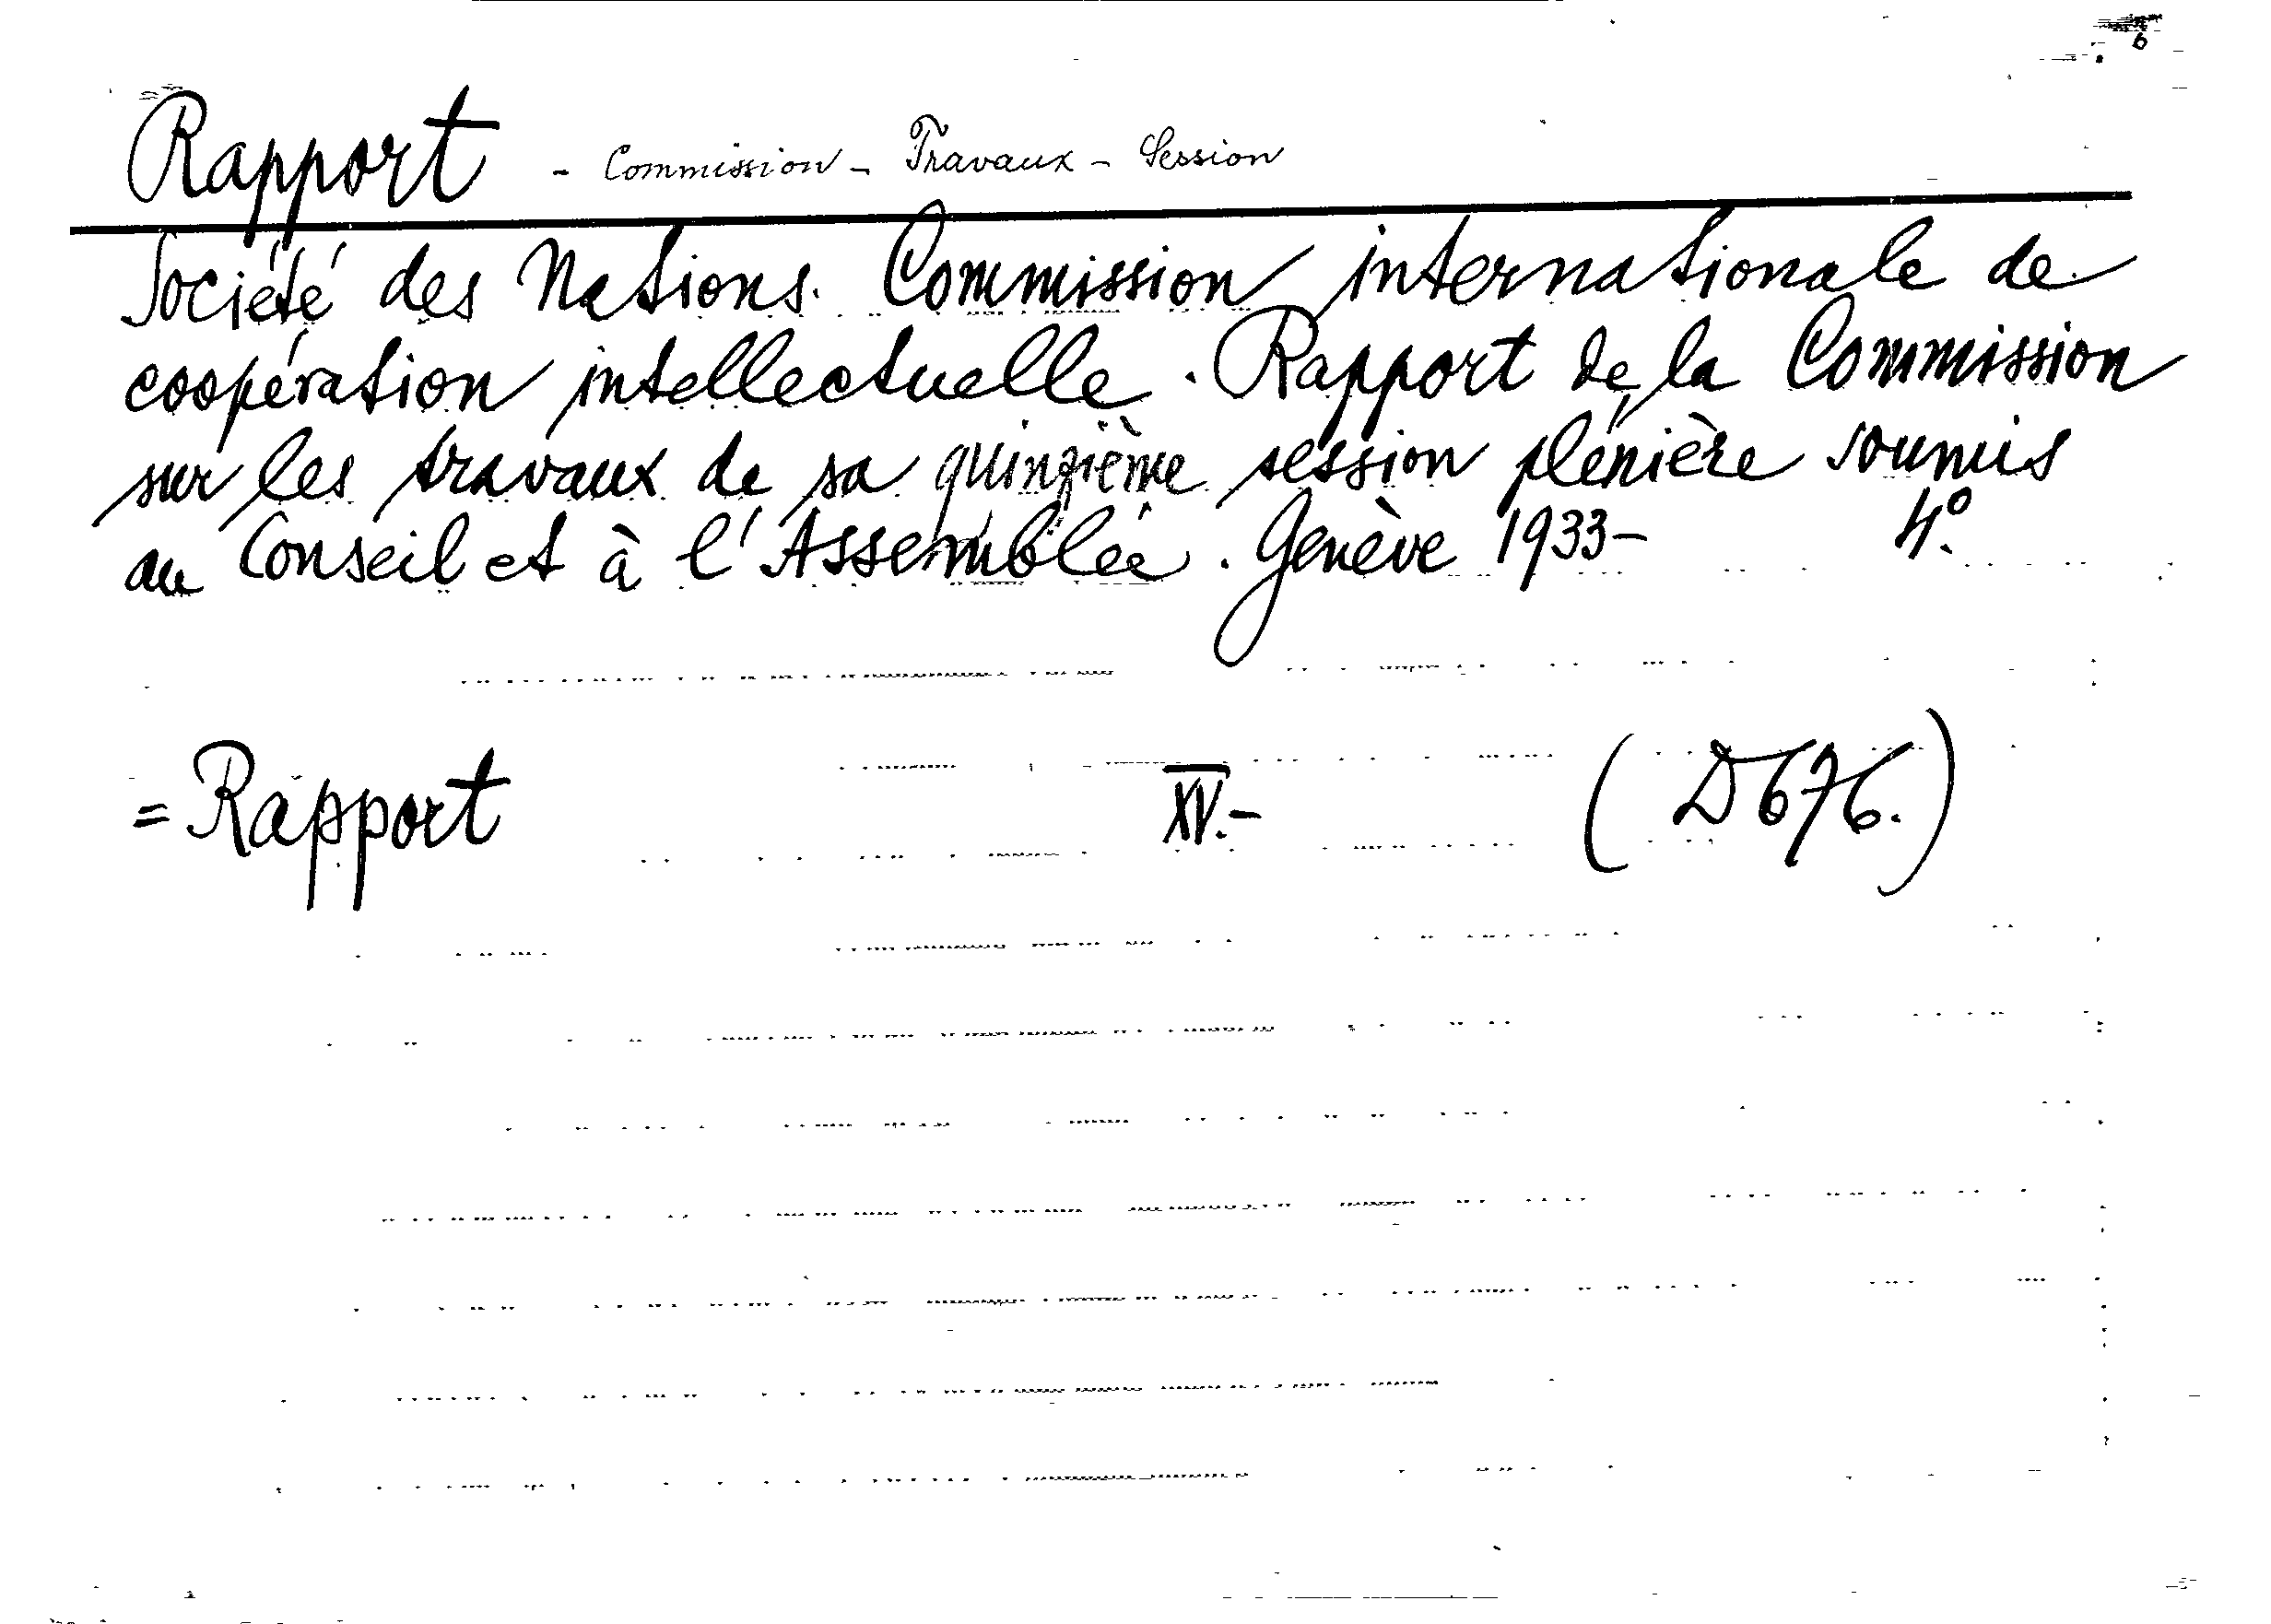 Rapport - Commission - Travaux - Session
Société des Nations. Commission internationale de
coopération intellectuelle. Rapport de la Commission
sur les travaux de sa quinzième session plénière soumis
au Conseil et à l'Assemblée. Genève 1933- 4°.
= Rapport XV.- (D676.)